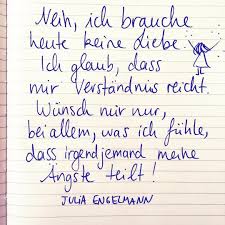 Nein, ich brauche
heute keine Liebe.
Ich glaub, dass
mir Verständnis reicht.
Wünsch mir nur,
bei allem, was ich fühle,
dass irgendjemand meine
Ängste teilt!
JULIA ENGELMANN